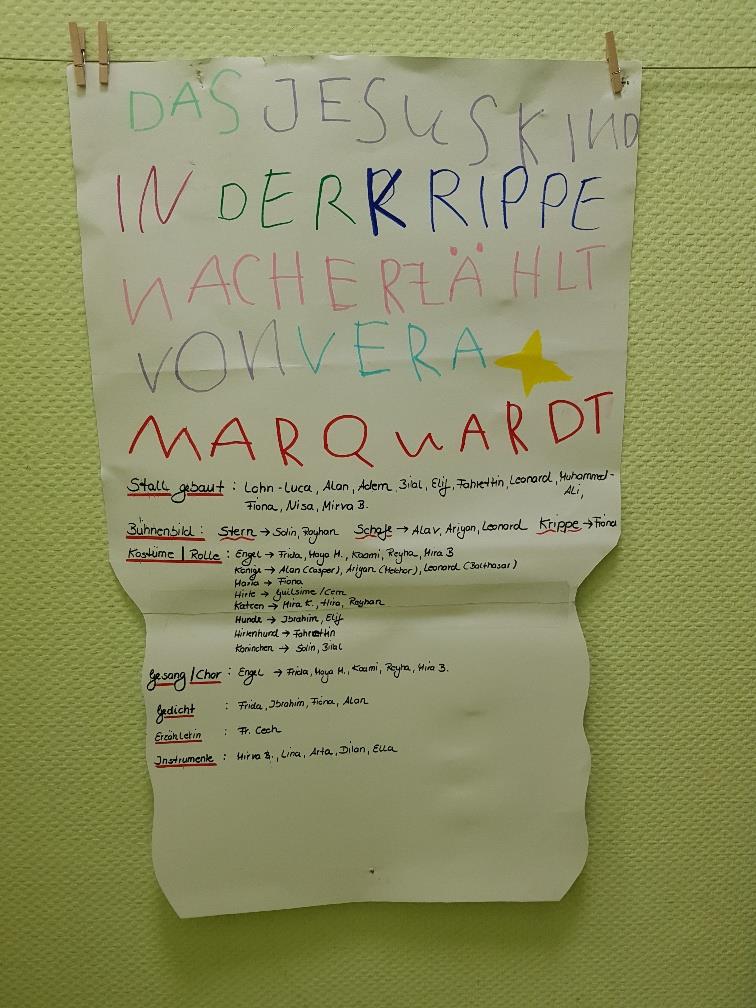 DAS JESUSKIND
IN DER KRIPPE
NACHERZÄHLT
VON VERA
MARQUARDT
Stall gebaut : Lohn-Luca, Alan, Adem, Bilal, Elif, Fahrettin, Leonard, Muhammed-
Ali,
Fiona, Nisa, Mirva B.
Bühnenbild : Stern → Solin, Rayhan Schafe → Alav, Ariyan, Leonard Krippe → Fiona
Kostüme | Rolle : Engel → Frida, Maya M., Koami, Reyha, Mira B
Könige → Alan (Casper), Ariyan (Melchor), Leonard (Balthasar)
Maria → Fiona
Hirte → Guilsime / Cem
Katzen → Mira K., Hira, Rayhan
Hunde → Ibrahim, Elif
Hirtenhund → Fahrettin
Kaninchen → Solin, Bilal
Gesang / Chor : Engel → Frida, Maya M., Koami, Reyha, Mira B.
Gedicht : Frida, Ibrahim, Fiona, Alan
Erzählerin : Fr. Cech
Instrumente : Mirva B., Lina, Arta, Dilan, Ella